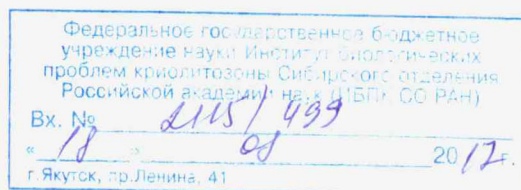 Федеральное государственное бюджетное
учреждение науки Институт биологических
проблем криолитозоны Сибирского отделения
Российской академии наук (ИБПК СО РАН)
Вх. № 2115/499
« 18 » 08 2017г.
г.Якутск, пр.Ленина, 41